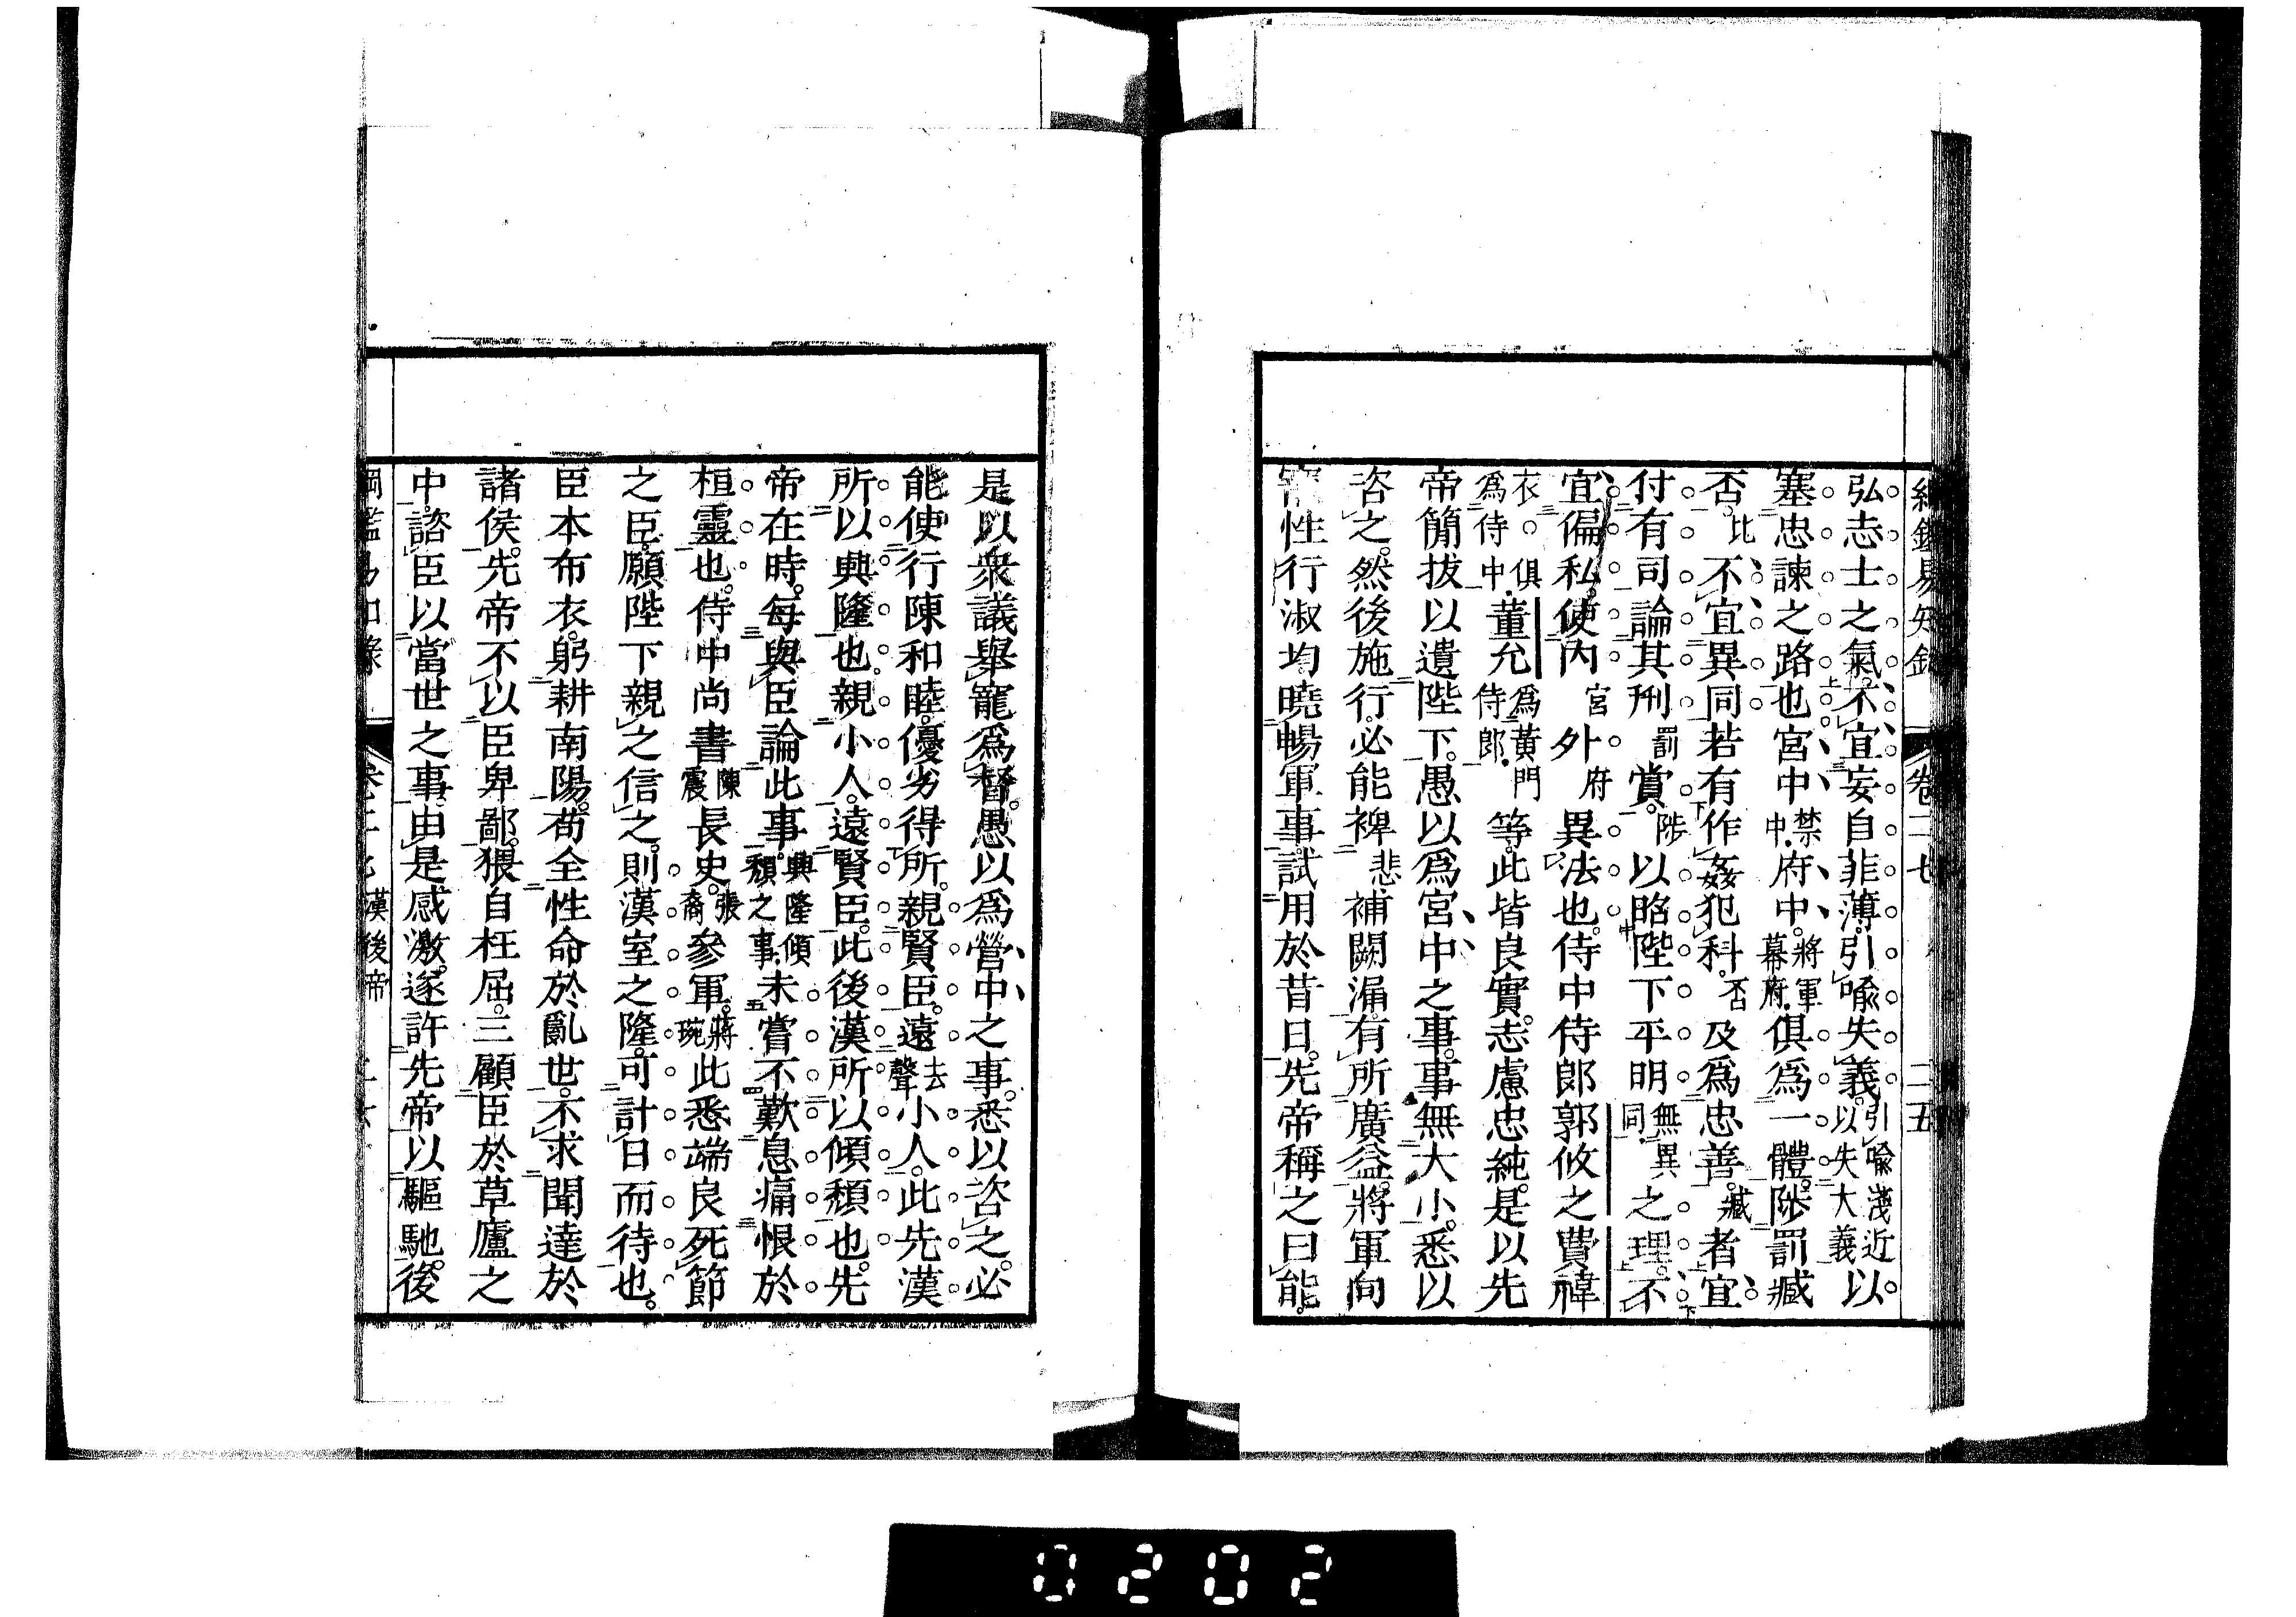 綱鑑易知錄 卷二七 二五
弘志士之氣不宜妄自菲薄引喩失義引喩淺近以失大義以
塞忠諫之路也宮中禁中府中將軍幕府俱爲一體陟罰臧
否比不宜異同若有作姦犯科否及爲忠善臧者宜
付有司論其刑罰賞陟以昭陛下平明無異同之理不
宜偏私使內宮外府異法也侍中侍郎郭攸之費禕
衣俱爲侍中董允爲黃門侍郎等此皆良實志慮忠純是以先
帝簡拔以遺陛下愚以爲宮中之事事無大小悉以
咨之然後施行必能裨悲補闕漏有所廣益將軍向
寵性行淑均曉暢軍事試用於昔日先帝稱之曰能
是以衆議舉寵爲督愚以爲營中之事悉以咨之必
能使行陳和睦優劣得所親賢臣遠去聲小人此先漢
所以興隆也親小人遠賢臣此後漢所以傾頹也先
帝在時每與臣論此事興隆傾頹之事未嘗不歎息痛恨於
桓靈也侍中尚書陳震長史張裔參軍蔣琬此悉端良死節
之臣願陛下親之信之則漢室之隆可計日而待也
臣本布衣躬耕南陽苟全性命於亂世不求聞達於
諸侯先帝不以臣卑鄙猥自枉屈三顧臣於草廬之
中諮臣以當世之事由是感激遂許先帝以驅馳後
漢後帝
0202